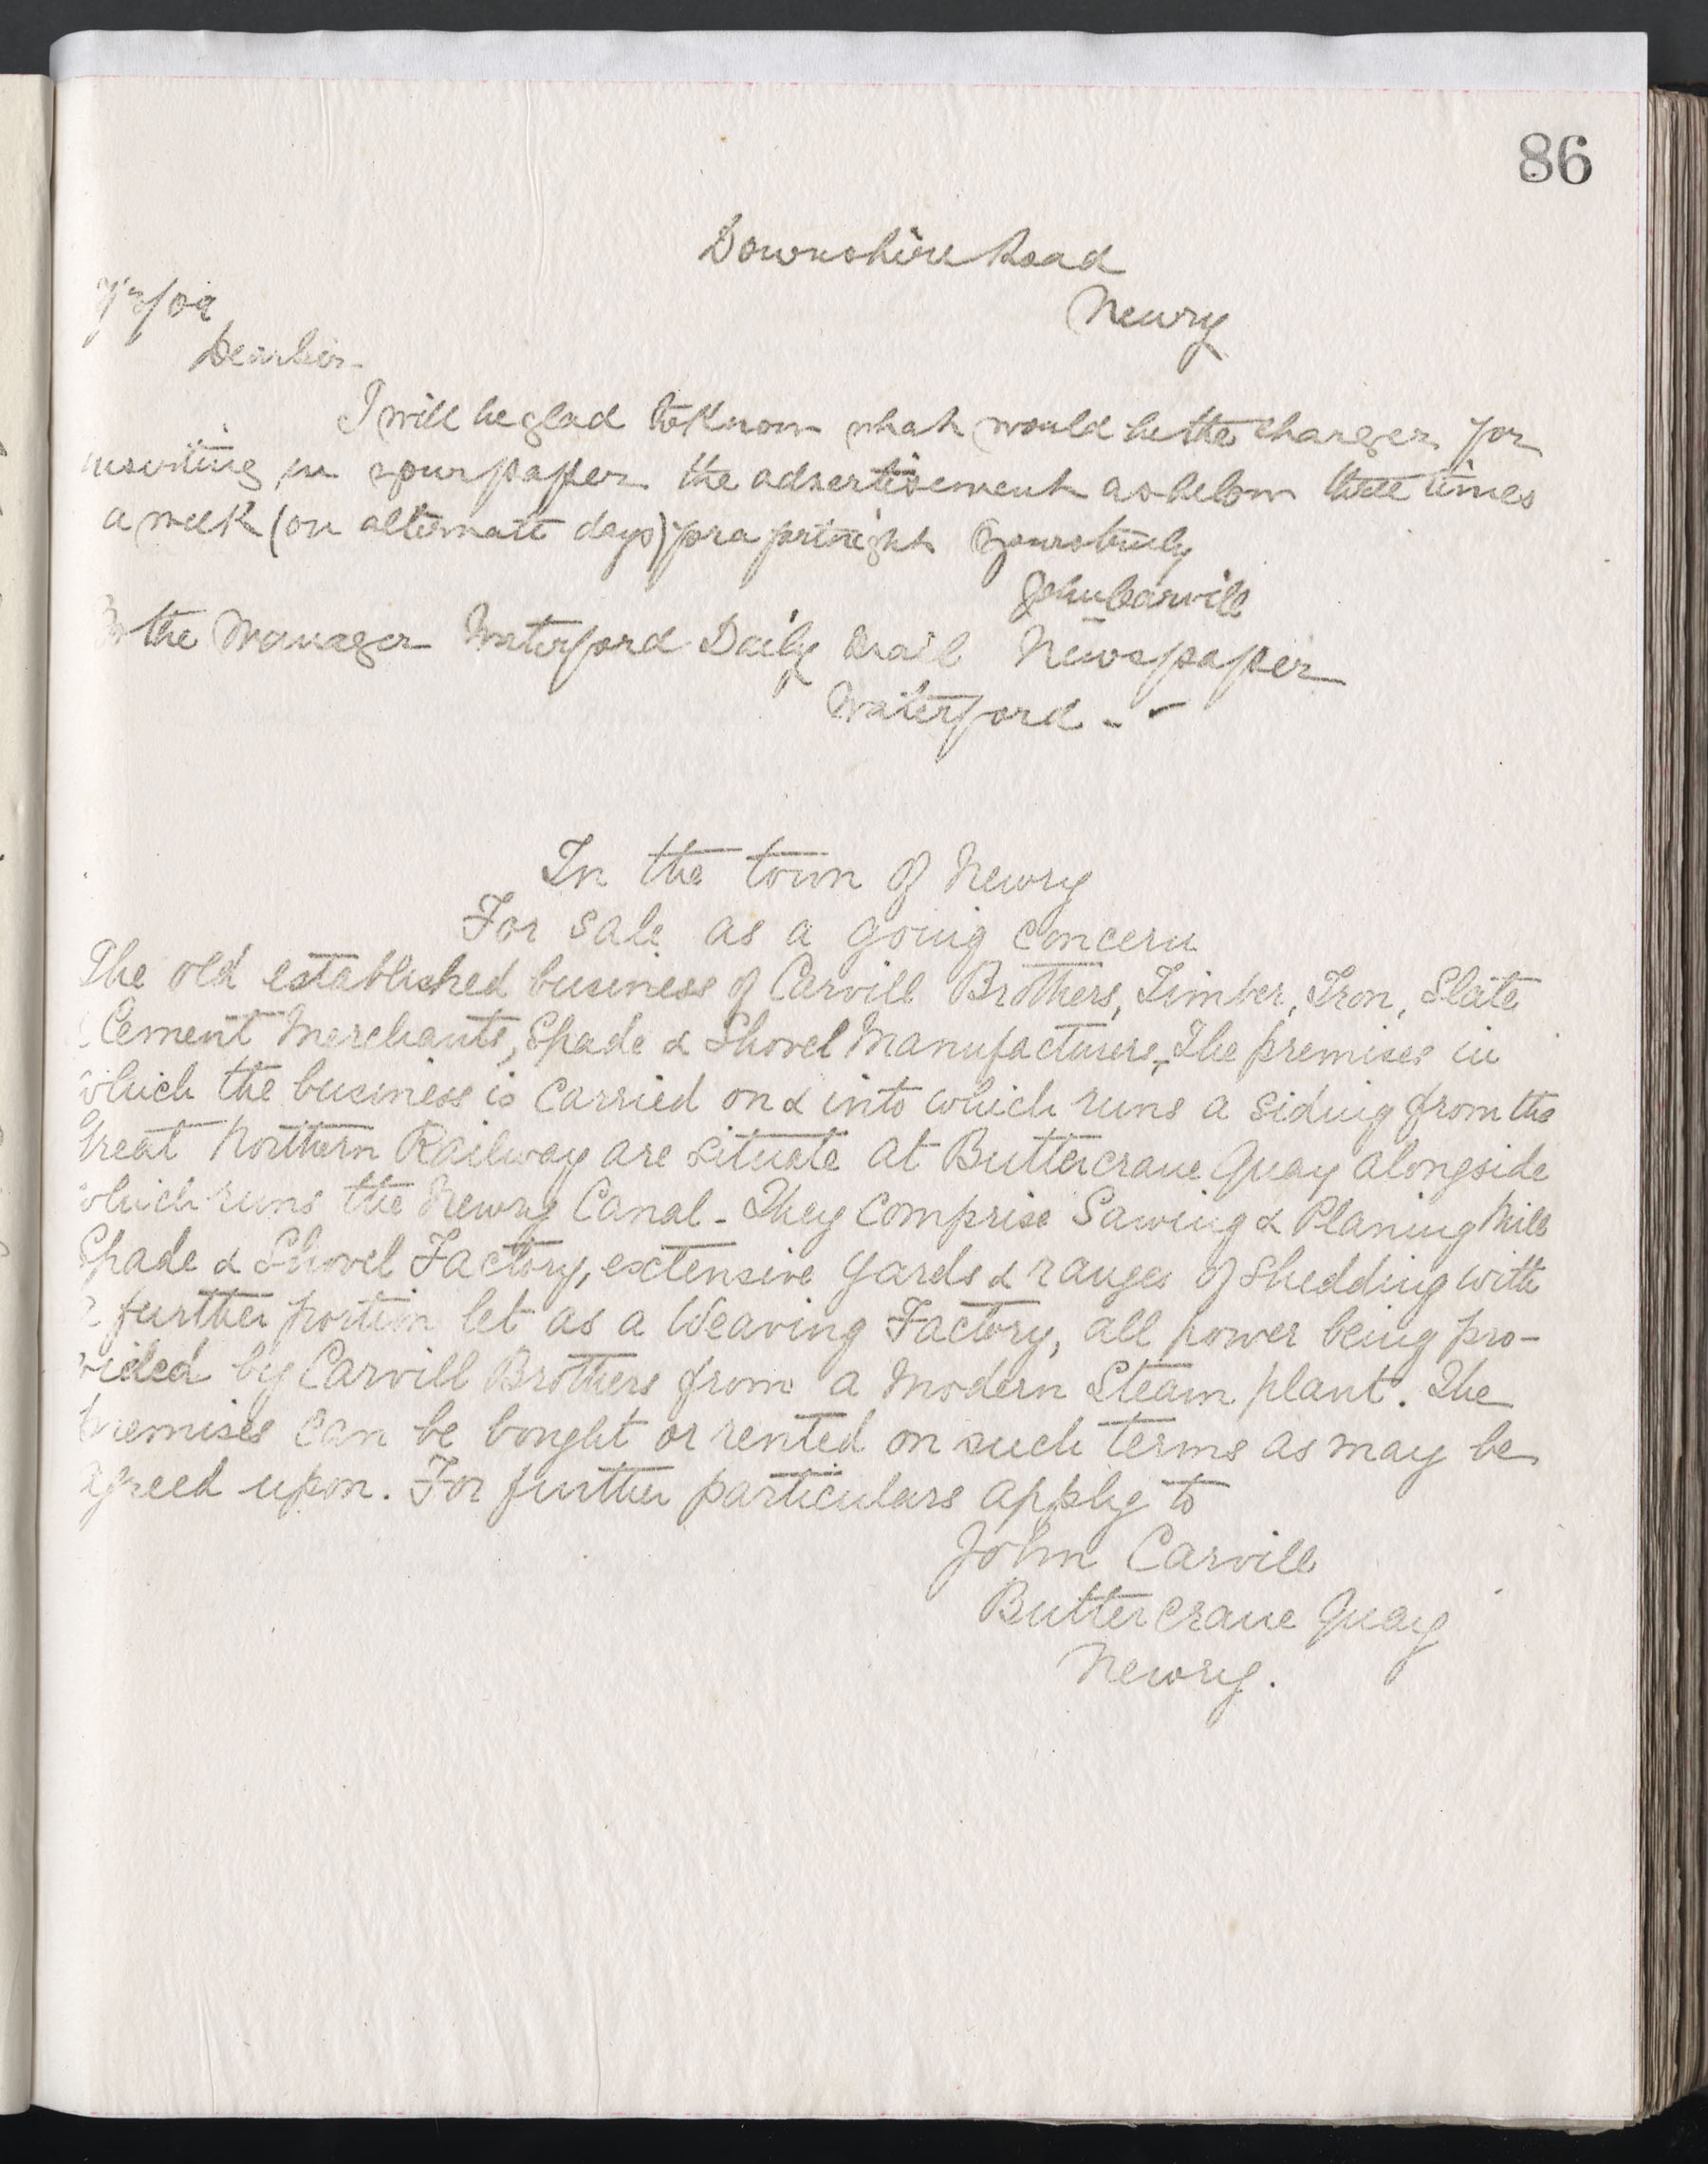 86
Downshire Road
Newry
Dear Sir
I will be glad to know what would be the charges for
inserting in your paper the advertisement as below three times
a week (on alternate days) for a fortnight Yours truly
John Carvill
To the Manager Waterford Daily Mail Newspaper
Waterford -
In the town of Newry
For sale as a going concern
The old established business of Carvill Brothers, Timber, Iron, Slate
Cement Merchants, Spade & Shovel Manufacturers, The premises in
which the business is carried on & into which runs a siding from the
Great Northern Railway are situate at Buttercrane Quay alongside
which runs the Newry Canal - They comprise Sawing & Planing Mills
Spade & Shovel Factory, extensive yards & ranges of shedding with
a further portion let as a Weaving Factory, all power being pro-
vided by Carvill Brothers from a modern Steam plant. The
premises can be bought or rented on such terms as may be
agreed upon. For further particulars apply to
John Carvill
Buttercrane Quay
Newry.